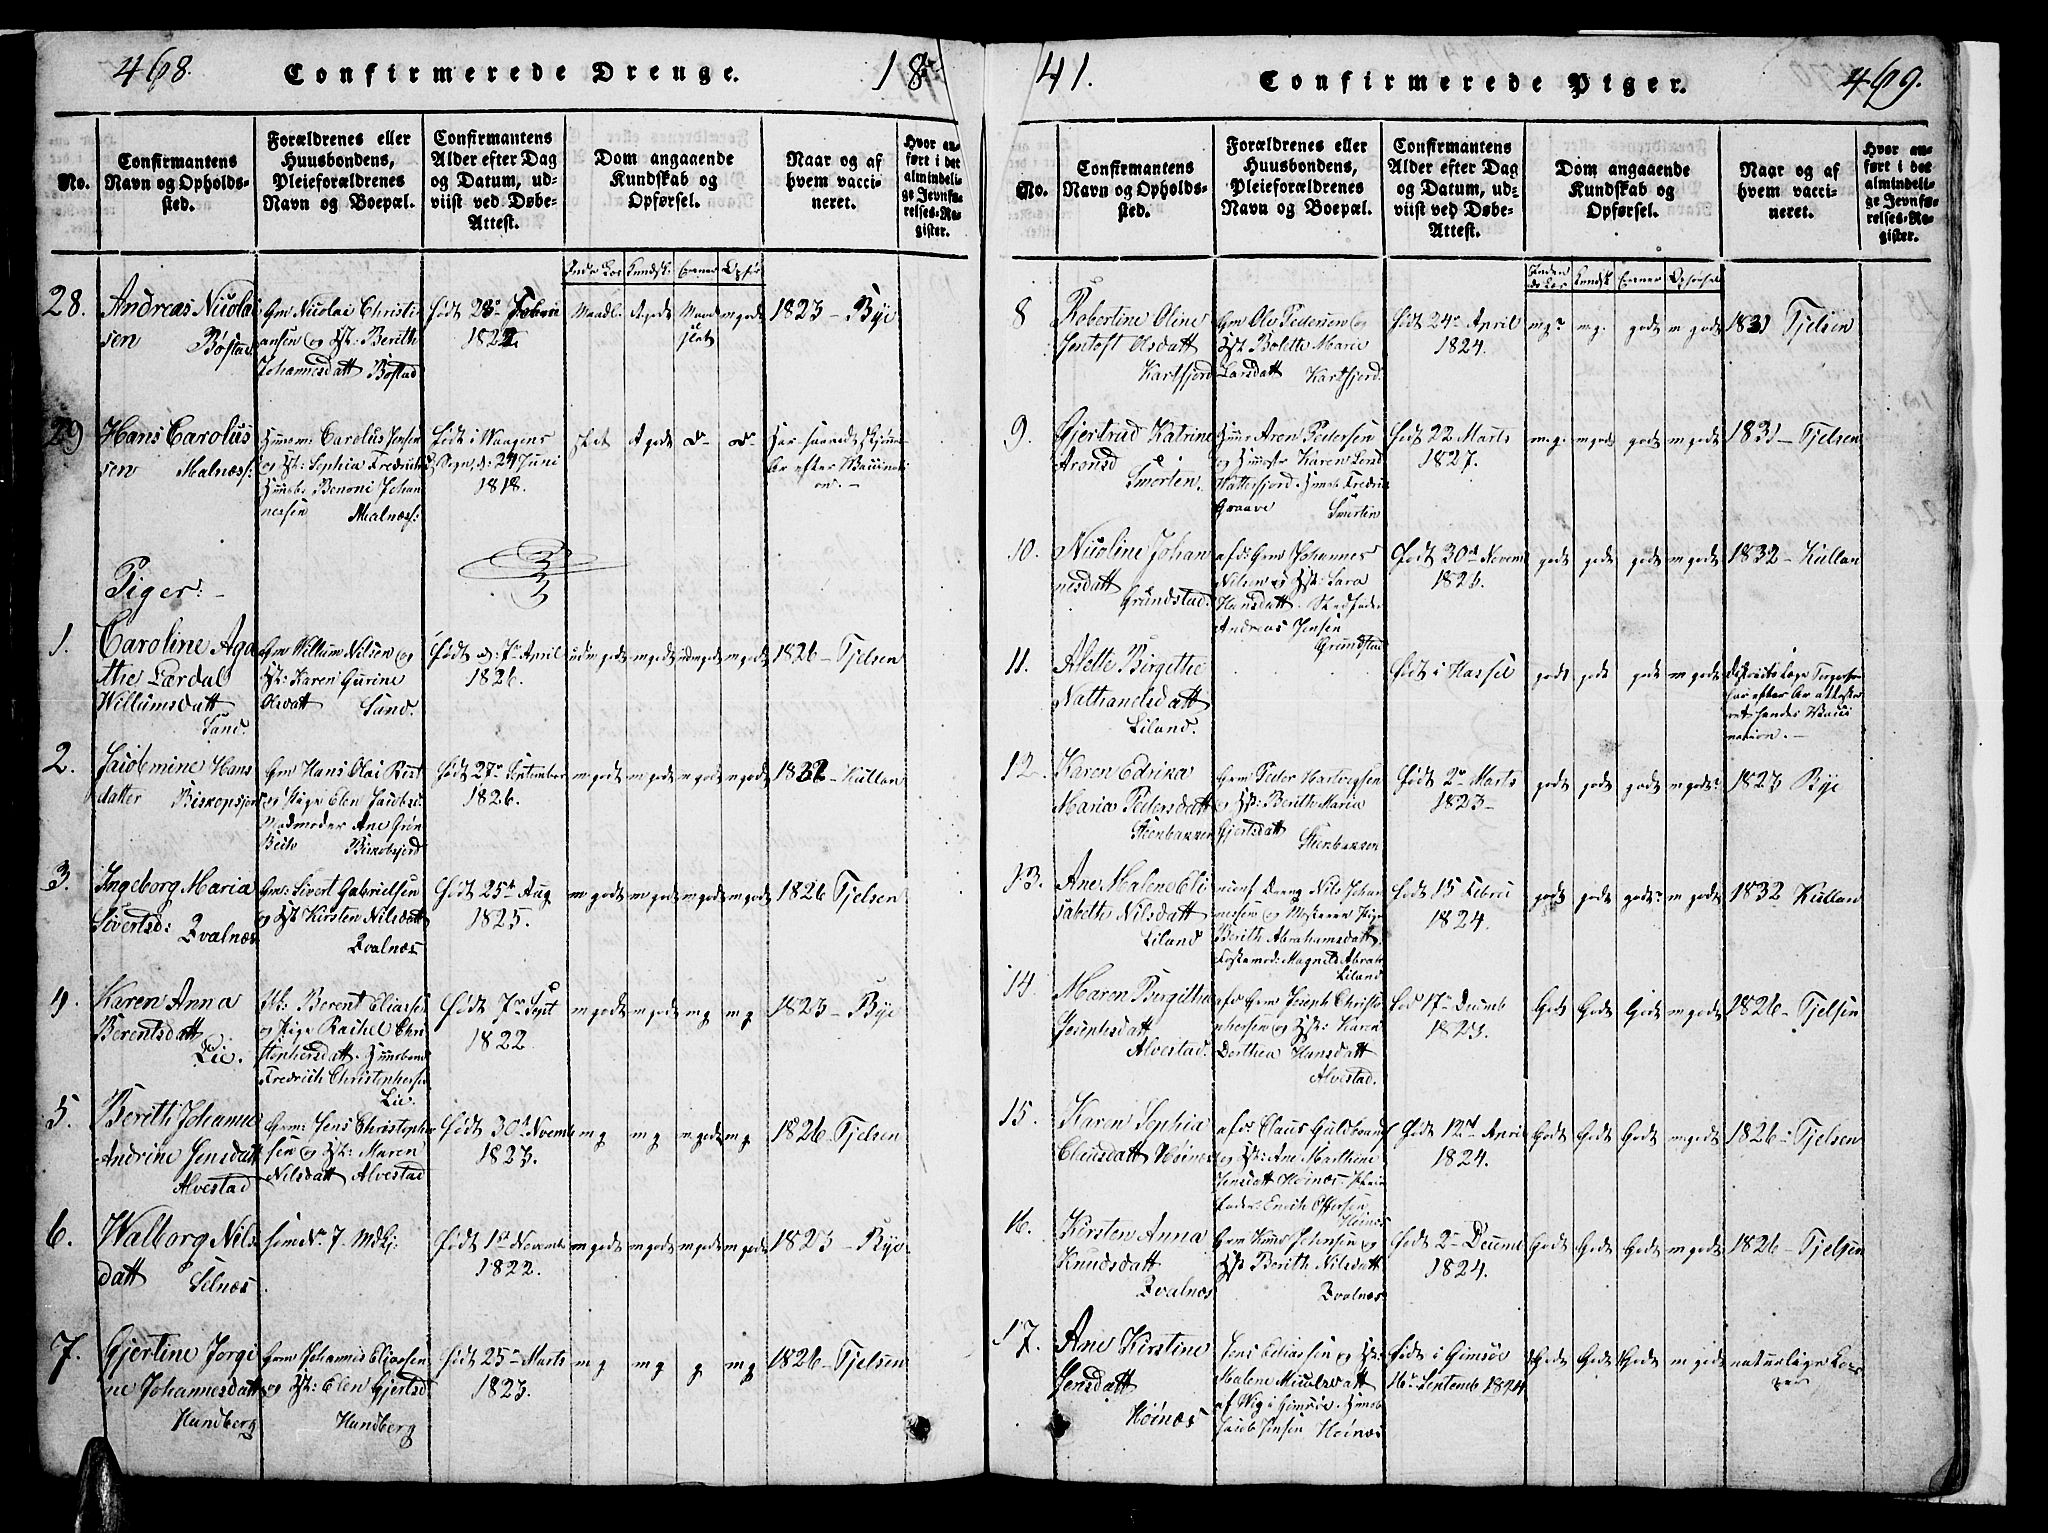 468.
Confirmerede Drenge.
18
No.
Confirmantens Navn og Opholds-sted.
Forældrenes eller Huusbondens, Pleieforældrenes Navn og Boepæl.
Confirmantens Alder efter Dag og Datum, ud-viist ved Døbe-Attest.
Dom angaaende Kundskab og Opførsel.
Naar og af hvem vacci-neret.
Hvor an-ført i det almindeli-ge Jevnfø-relses-Re-gister.
28.
Andreas Nicolai
sen Bøstad
Gm Nicolai Christi
ansen og Hst: Berith
Johannesdatt Bøstad
Født 28de Febru
1822
Maadl. A gode m gode
1823 – Bye
29
Hans Carolus
sen Malnæs:
Huusm: Carolus Jensen
og Hst: Sophia Fredrichs
Huusb: Benoni Johan
nessen Malnæs:
Født i Waagens
Sogn, d: 24 Juni
1818.
slet A gode do do
Piger: –
1.
Caroline Aga
the Lærdal
Willumsdatt
Sand.
Gm Willum Nilsen og
Hst: Karen Gurine
Olsdatt Sand.
Født d: 7de April
1826.
udm gode m gode udm gode m gode
1826 – Tjelsen
2.
Jacobmine Hans
datter Biskopsjord
Gm Hans Olai Rist
og Pige Elen Jacobsd:
Madmoder Ane Grøn
Bech
Født 27de September
1826.
m gode m gode m gode m gode
1832 – Kullan
3.
Ingeborg Maria
Sivertsd: Hvalnæs
Gm: Sivert Gabrielsen
og Hst Kirsten Nilsdatt
Hvalnæs
Født 25de Aug
1825.
m gode m gode m gode m gode
1826 Tjelsen
4.
Karen Anna
Berentsdatt
Lie.
Berent Eliassen
og Pige Rachel Chri
stophersdatt. Huusbond
Fredrich Christophersen
Lie.
Født 7de Sept
1822
m gode m gode m g m g
1823 – Bye
5.
Berith Johanne
Andrine Jensdatt
Alvestad
Gm: Jens Christopher
sen og Hst: Maren
Nilsdatt Alvestad
Født 30de Novemb
1823.
m g m g m gode m g
1826 Tjelsen
6.
Walborg Nils
datt Selnæs
som No 7.
Født 1de November
1822.
m gode m gode m gode m gode
1823 – Bye
7.
Gjertine Jorgi
ne Johannesdatt
Hundberg
Gm Johannes Eliassen
og Hst: Elen Gjertsd
Hundberg
Født 25de Marts
1823.
m g m g g m g
1826 – Tjelsen
41.
Confirmerede Piger.
469.
No.
Confirmantens Navn og Opholds-sted.
Forældrenes eller Huusbondens, Pleieforældrenes Navn og Boepæl.
Confirmantens Alder efter Dag og Datum, ud-viist ved Døbe-Attest.
Dom angaaende Kundskab og Opførsel.
Naar og af hvem vacci-neret.
Hvor an-ført i det almindeli-ge Jevnfø-relses-Re-gister.
8
Robertine Oline
Jentoft Olsdatt
Kartfjord
Gm Ole Pedersen og
Hst Bolette Marie
Larsdatt Kartfjord.
Født 24de April
1824.
m g. m g. gode m gode
1831 Tjelsen
9.
Gjertrud Katrine
Aronsd
Smorten.
Huusm Aron Pedersen
og Hustr Karen Larsd
Fredrik
Graave Smorten
Født 22 Marts
1827.
m.g. m gode gode m gode
1831 – Tjelsen
10.
Nicoline Johan
nesdatt
Grundstad.
afd: Gm Johannes
Nilsen og Hst: Sara
Hansdatt. Stedfader
Andreas Jensen
Grundstad
Født 30de Novemb
gode gode gode m gode
1832 – Kullan
11.
Alette Birgithe
Nathanelsdatt
Liland.
Født i Hassel
gode gode gode m gode
12.
Karen Edrika
Maria Pedersdatt
Steenbakken
Gm Peder Hartvigsen
og Hst: Berith Maria
Gjertsdatt
Steenbakken
Født 2de Marts
1823 –
gode gode gode m gode
1823 Bye
13.
Ane Malene Eli
sabeth Nilsdatt
Liland
Nils Johan
nessen og
Berith Abrahamsdatt.
Liland
Født 15 Febru
1824.
gode gode gode m gode
1832 Kullan
14.
Maren Birgithe
Josephsdatt
Alvestad.
afd Gm Joseph Christo
phersen og Hst: Karen
Dorthea Hansdatt
Alvestad.
Fød 17de Decemb
1823.
Gode Gode Gode m gode
1826 – Tjelsen
15.
Karen Sophia
Clausdatt Høinæs
afd: Claus Guldbrand
og Hst: Ane Marthine
Jensdatt Høinæs
Høinæs
Født 12te April
1824.
Gode Gode Gode m gode
1826 – Tjelsen
16.
Kirsten Anna
Knudsdatt
Hvalnæs
Gm Knud Johnsen og
Hst Berith Nilsdatt
Hvalnæs
Født 2de Decemb
1824.
Gode Gode Gode m gode
1826 – Tjelsen
17.
Ane Kirstine
Jensdatt
Høinæs
Jens Eliassen og Hst:
Malene Nicolaidatt
af Wig i Gimsøe. Huusb
Jacob Jensen Høinæs
Født i Gimsøe
16de Septemb 1824
Gode Gode Gode m gode
naturlige Ko-
per